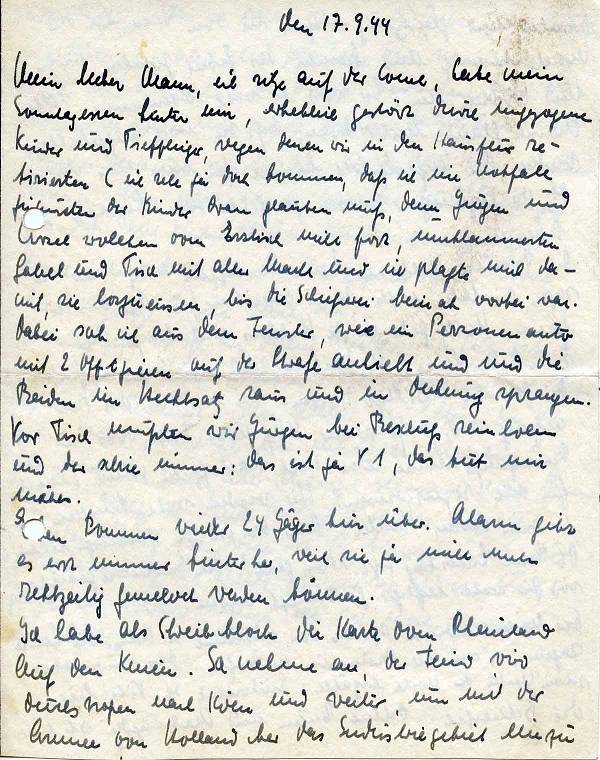 den 17.9.44
Mein lieber Mann, ich sitze auf der Couch, habe mein
Sonntagessen hinter mir, erheblich gestört durch ungezogene
Kinder und Tiefflieger, wegen denen wir in den Hausflur re-
tirierten (ich sehe ja doch kommen, daß ich im Notfalle
der Kinder dran glauben muß, denn Jürgen und
wollten vom Esstisch nicht fort, umklammerten
Gabel und Tisch mit aller Macht und ich plagte mich da-
mit, sie loszueisen, bis die Schießerei beinah vorbei war.
Dabei sah ich aus dem Fenster, wie ein Personenauto
mit 2 Offizieren auf der Straße anhielt und und die
Beiden im Hechtsatz raus und in Deckung sprangen.
Vor Tisch mußten wir Jürgen bei Beschuß reinholen
und der schrie immer: das ist ja V 1, das tut mir
nichts.
kommen wieder 24 Jäger hier über. Alarm gibt
es erst immer hinterher, weil sie ja nicht mehr
rechtzeitig gemeldet werden können.
Ich habe als Schreibblock die Karte vom Rheinland
auf den Knien. So nehme an, der Feind wird
durchstoßen nach Köln und weiter, um mit der
Armee von Holland her das Industriegebiet